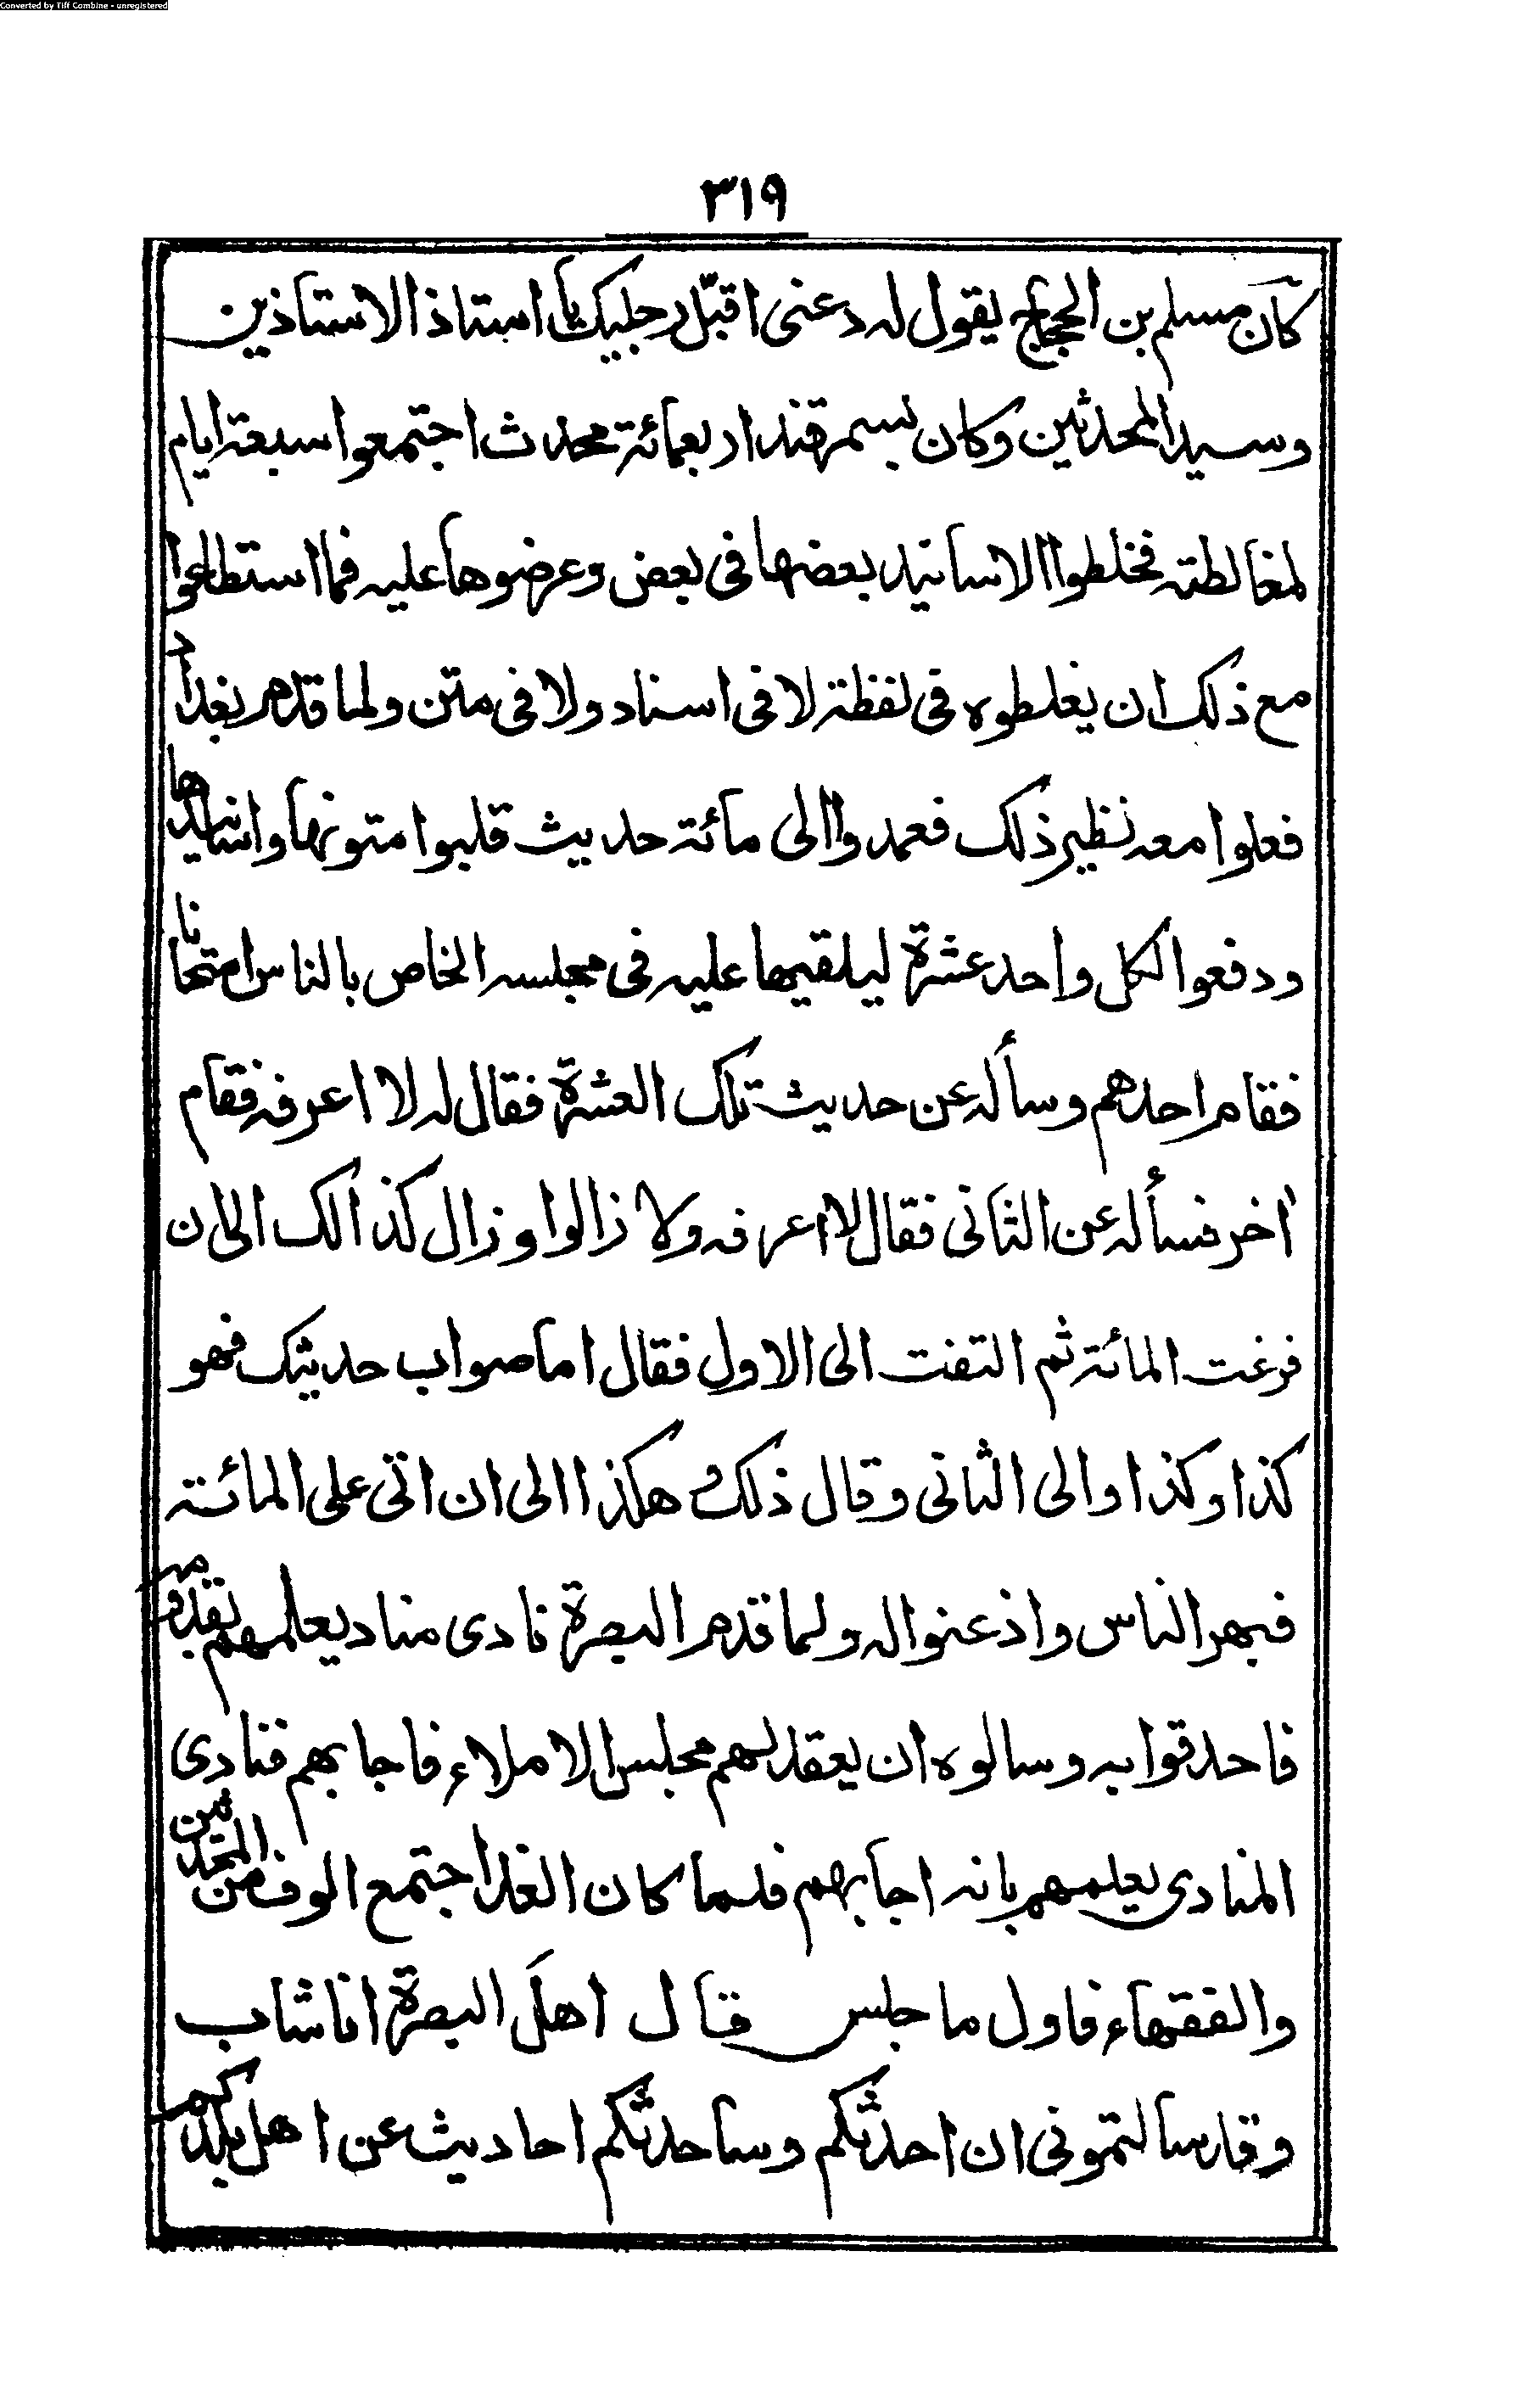 Converted by Tiff Combine - unregistered
٣١٩
كان مسلم بن الحجاج يقول له دعنى اقبّل رجليك يا استاذ الاستاذين
وسيد المحدثين وكان بسمرقند اربعمائة محدث اجتمعوا سبعة ايام
لمغالطته فخلطوا الاسانيد بعضها فى بعض وعرضوها عليه فما استطاعوا
مع ذلك ان يغلطوه فى لفظة لا فى اسناد ولا فى متن ولما قدم بغداد
فعلوا معه نظير ذلك فعمدوا الى مائة حديث قلبوا متونها واسانيدها
ودفعوا لكل واحد عشرة ليلقيها عليه فى مجلسه الخاص بالناس امتحانا
فقام احدهم وسأله عن حديث تلك العشرة فقال له لا اعرفه فقام
اخر فسأله عن الثانى فقال لا اعرفه ولا زالوا وزال كذالك الى ان
فرغت المائة ثم التفت الى الاول فقال اما صواب حديثك فهو
كذا وكذا والى الثانى وقال ذلك وهكذا الى ان اتى على المائة
فبهر الناس واذعنوا له ولما قدم البصرة نادى مناد يعلمهم بقدومه
فاحدقوا به وسالوه ان يعقد لهم مجلس الاملاء فاجابهم فنادى
المنادى يعلمهم بانه اجابهم فلما كان الغد اجتمع الوف من المحدثين
والفقهاء فاول ما جلس قال اهل البصرة انا شاب
وقد سالتمونى ان احدثكم وساحدثكم احاديث عن اهل بلدكم